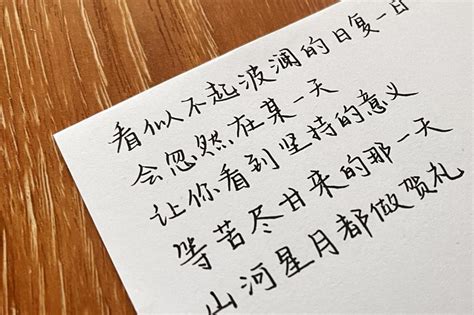 看似不起波澜的日复一日
会忽然在某一天
让你看到坚持的意义
等苦尽甘来的那一天
山河星月都做贺礼